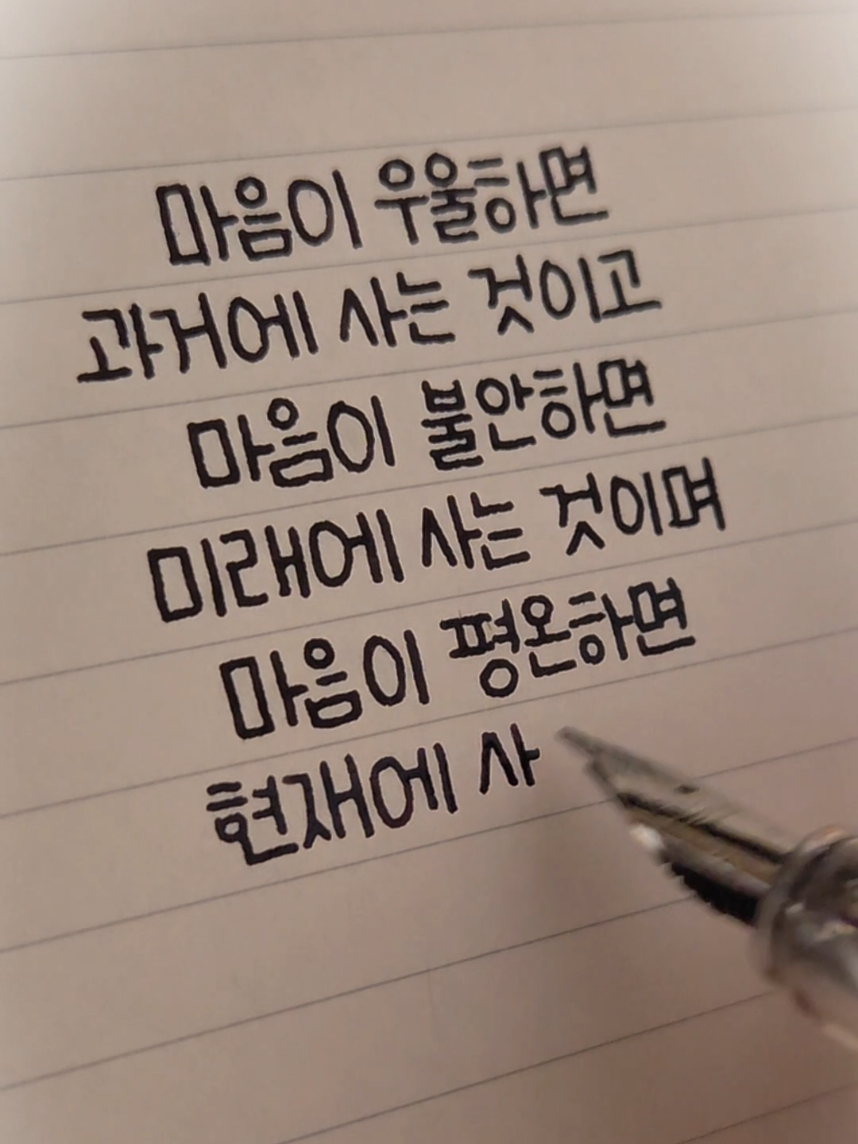 마음이 우울하면
과거에 사는 것이고
마음이 불안하면
미래에 사는 것이며
마음이 평온하면
현재에 사